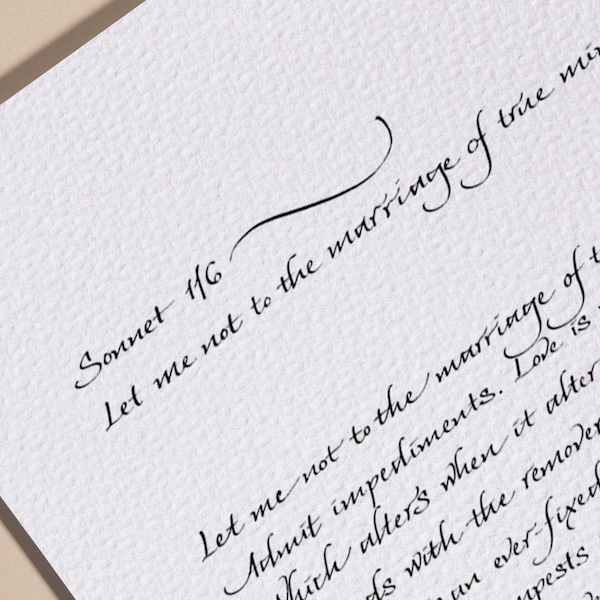 Sonnet 116
Let me not to the marriage of true
Let me not to the marriage of
Admit impediments. Love is
Which alters when it alter
with the remover
an ever-fixed